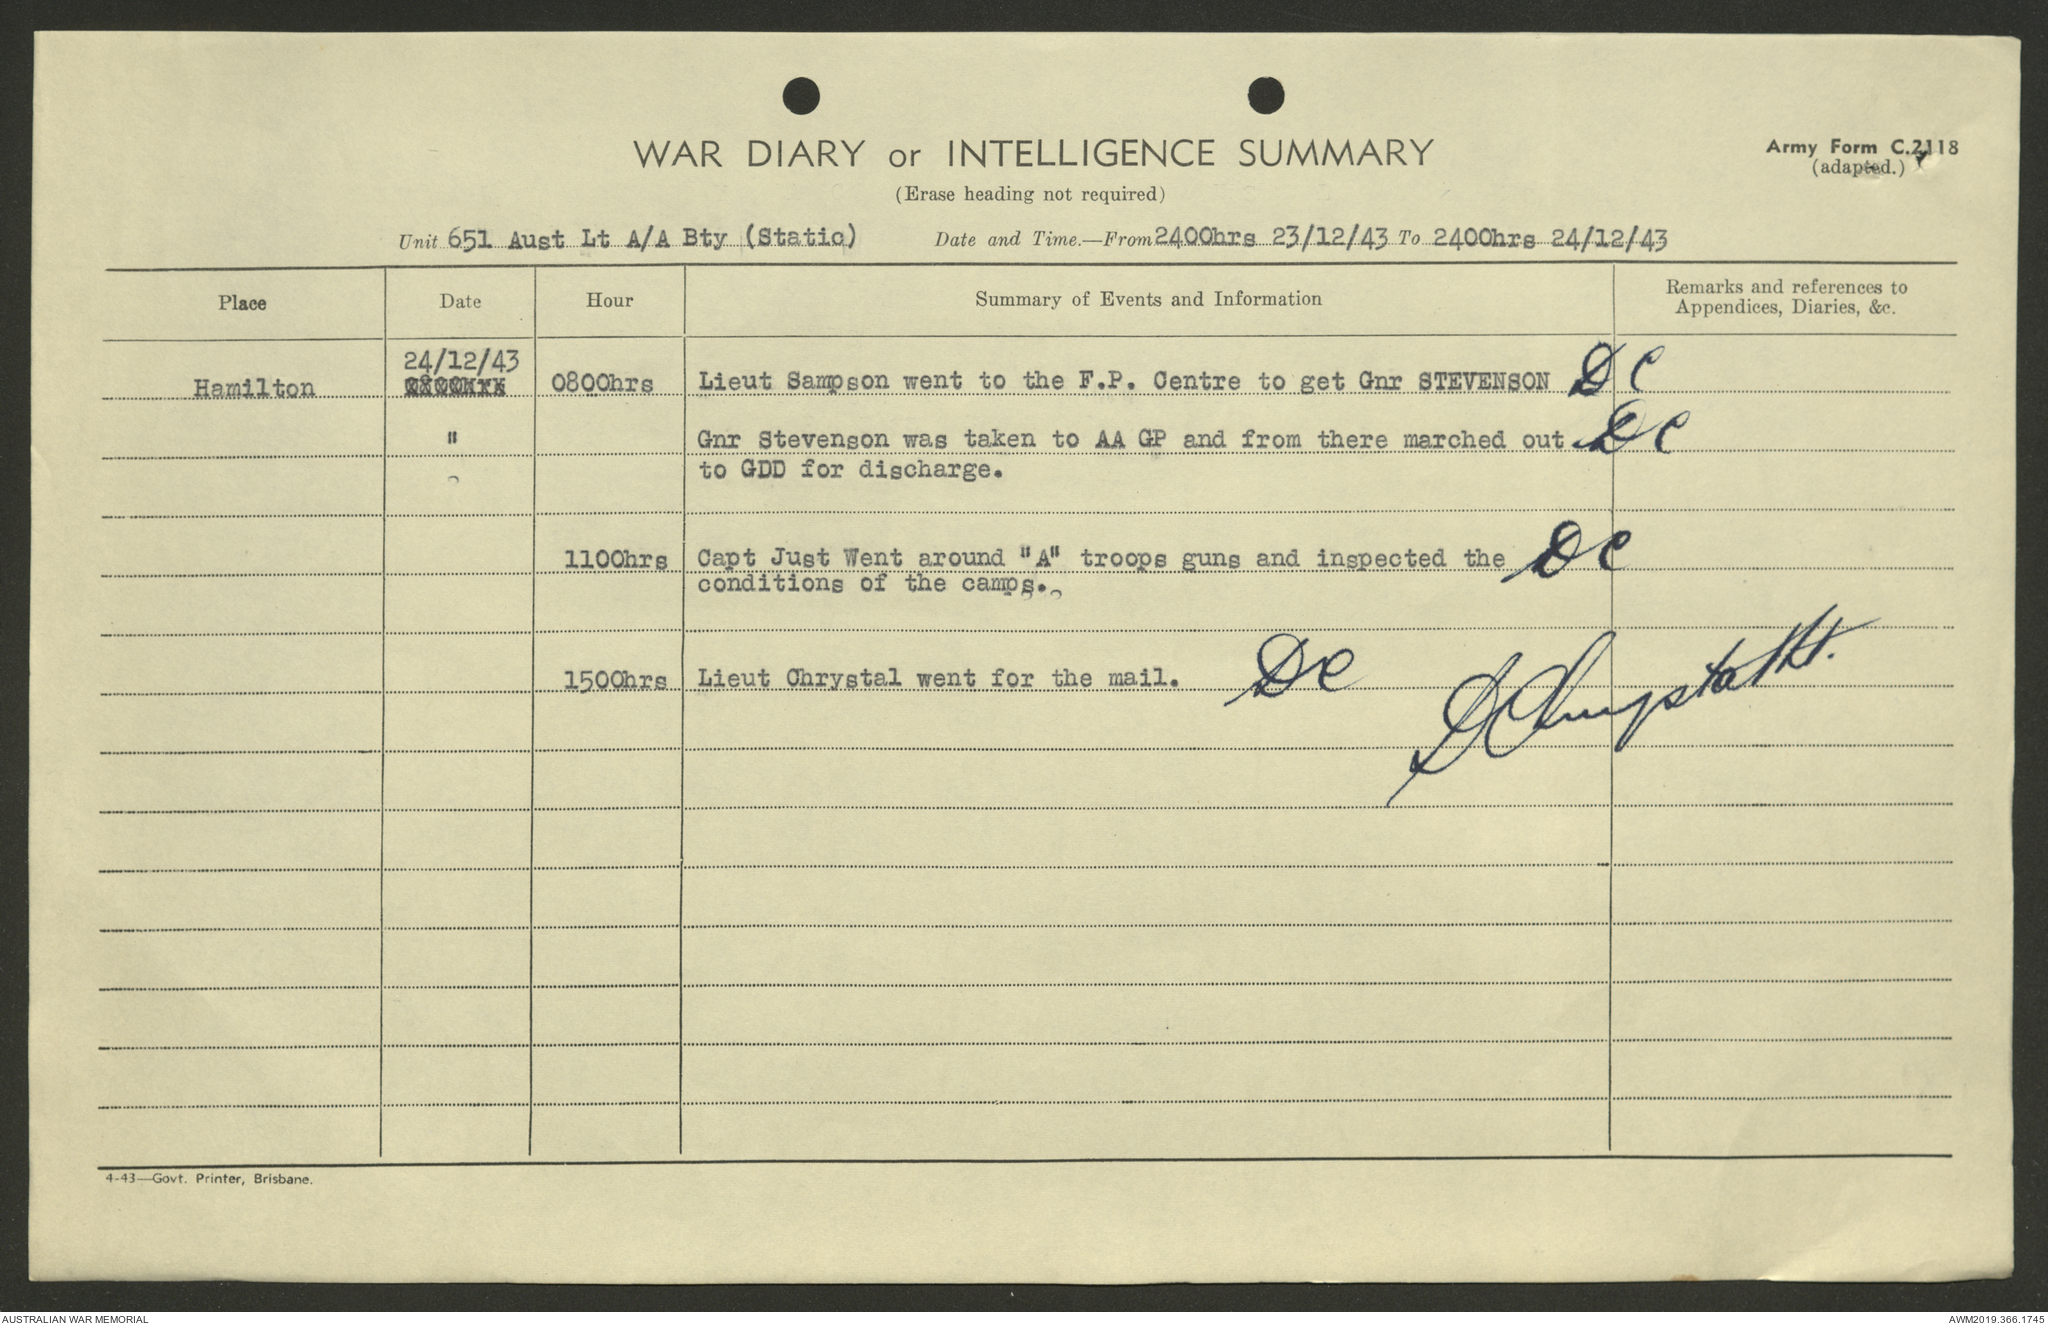 WAR DIARY or INTELLIGENCE SUMMARY
Army Form C.2118
(adapted.)
(Erase heading not required)
Unit 651 Aust Lt A/A Bty (Static) Date and Time.—From 2400hrs 23/12/43 To 2400hrs 24/12/43
Place Date Hour Summary of Events and Information Remarks and references to
Appendices, Diaries, &c.
24/12/43
Hamilton 0800hrs Lieut Sampson went to the F.P. Centre to get Gnr STEVENSON DC
" Gnr Stevenson was taken to AA GP and from there marched out DC
to GDD for discharge.
1100hrs Capt Just Went around "A" troops guns and inspected the DC
conditions of the camps.
1500hrs Lieut Chrystal went for the mail. DC
D Chrystal Lt.
4-43—Govt. Printer, Brisbane.
AUSTRALIAN WAR MEMORIAL
AWM2019.366.1745